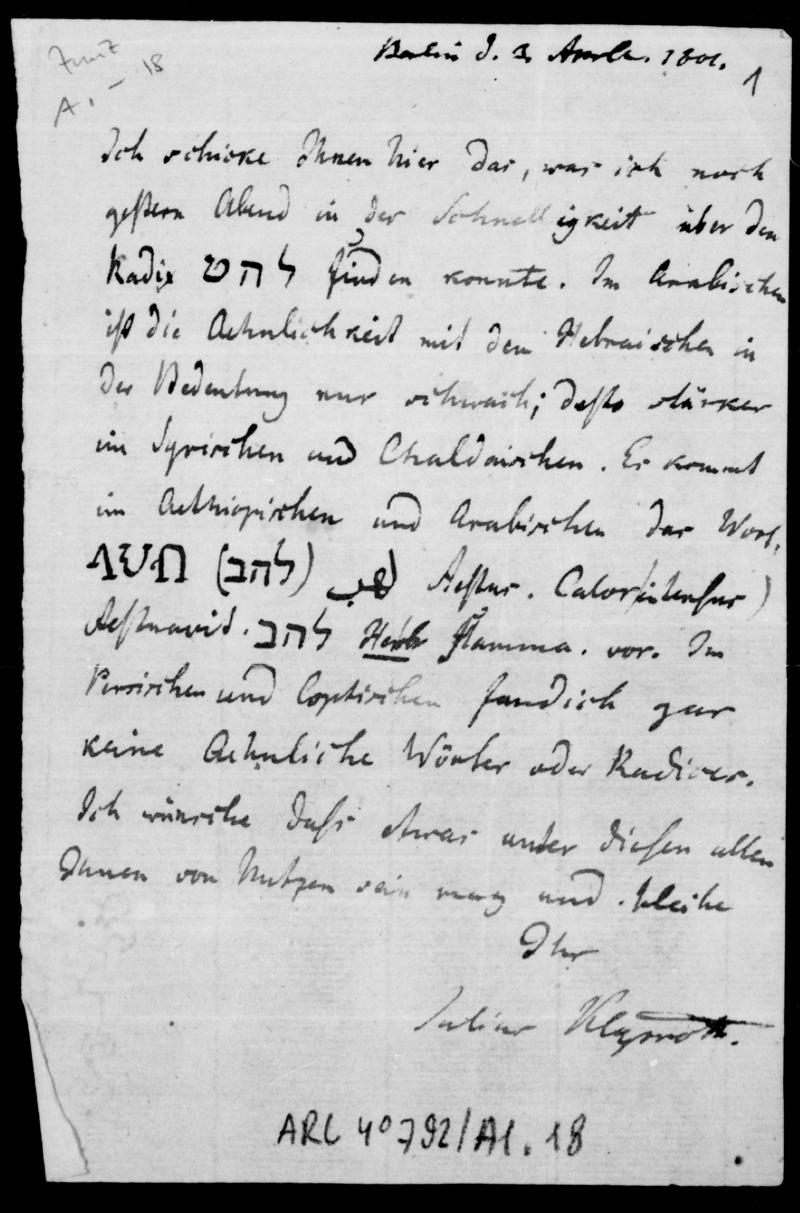 Zunz
A. – 18
Berlin d. 3. 1801.
1
Ich schicke Ihnen hier das, was ich noch
gestern Abend in der Schnelligkeit über den
Radix להט finden konnte. Im Arabischen
ist die Aehnlichkeit mit dem Hebraischen in
der Bedeutung nur schwach; desto stärker
im Syrischen und Chaldaischen. Es kommt
im Aethiopischen und Arabischen das Wort,
(להב) لهب Aestus. Calor (intensus)
Aestuavit. להב Hebr Flamma. vor. Im
Persischen und Coptischen fand ich gar
keine Aehnliche Wörter oder Radices.
Ich wünsche dass etwas unter diesen allen
Ihnen von Nutzen sein mag und bleibe
Ihr
Julius Klaproth.
ARC 4° 792/A1. 18